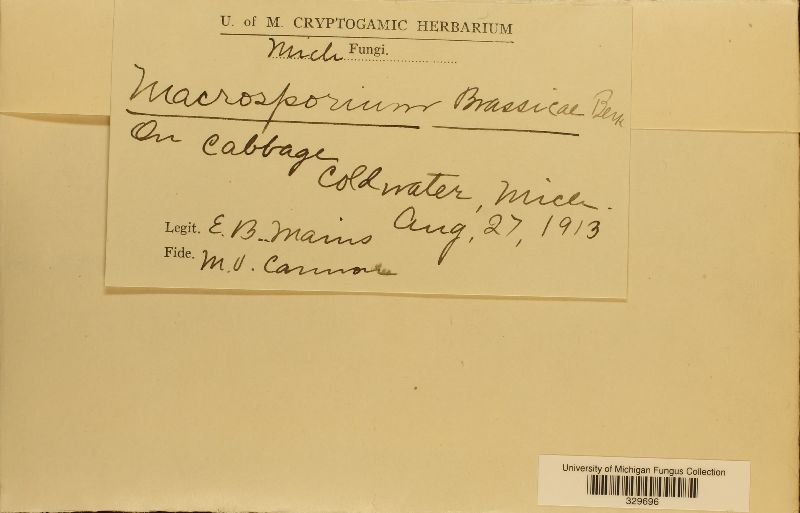 U. of M. CRYPTOGAMIC HERBARIUM
Mich Fungi.
Macrosporium Brassicae Berk
On cabbage
Coldwater, Mich.
Aug, 27, 1913
Legit. E. B. Mains
Fide. M. V.
University of Michigan Fungus Collection
329696